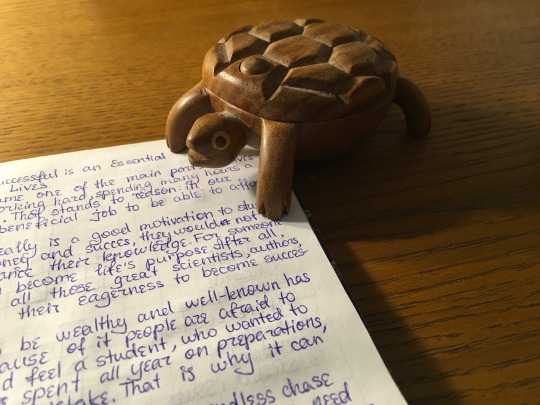 uccessful is an Essential
Lives
ame one of the main part
orking hard, spending many hours a
. That stands to reason: in our
beneficial job to be able to
eally is a good motivation to stu
oney and succes, they would not
ance their knowledge. For someone
become life's purpose. After all
all those great scientists, authors,
their eagerness to become succes-
be wealthy and well-known has
ause of it people are afraid to
d feel a student, who wanted to
spent all year on preparations,
istake. That is why it can
ndless chase
need